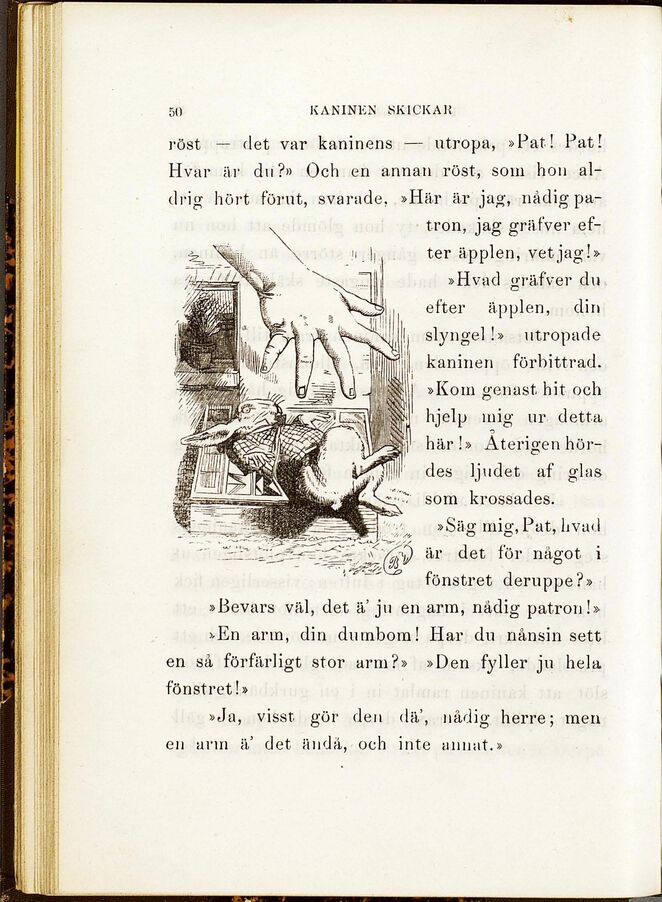 50 KANINEN SKICKAR
röst — det var kaninens — utropa, »Pat! Pat!
Hvar är du?» Och en annan röst, som hon al-
drig hört förut, svarade, »Här är jag, nådig pa-
tron, jag gräfver ef-
ter äpplen, vet jag!»
»Hvad gräfver du
efter äpplen, din
slyngel!» utropade
kaninen förbittrad.
»Kom genast hit och
hjelp mig ur detta
här!» Återigen hör-
des ljudet af glas
som krossades.
»Säg mig, Pat, hvad
är det för något i
fönstret deruppe?»
»Bevars väl, det ä' ju en arm, nådig patron!»
»En arm, din dumbom! Har du nånsin sett
en så förfärligt stor arm?» »Den fyller ju hela
fönstret!»
»Ja, visst gör den dä', nådig herre; men
en arm ä' det ändå, och inte annat.»